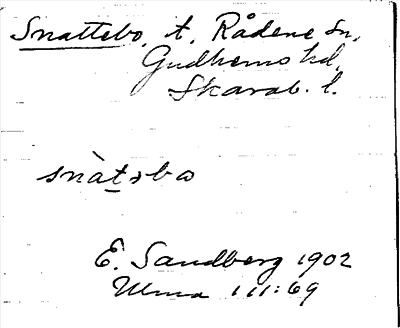 Snattebo, t. Rådene sn,
Gudhems hd,
Skarab. l.
snàtəbo
E. Sandberg 1902
Ulma 111:69